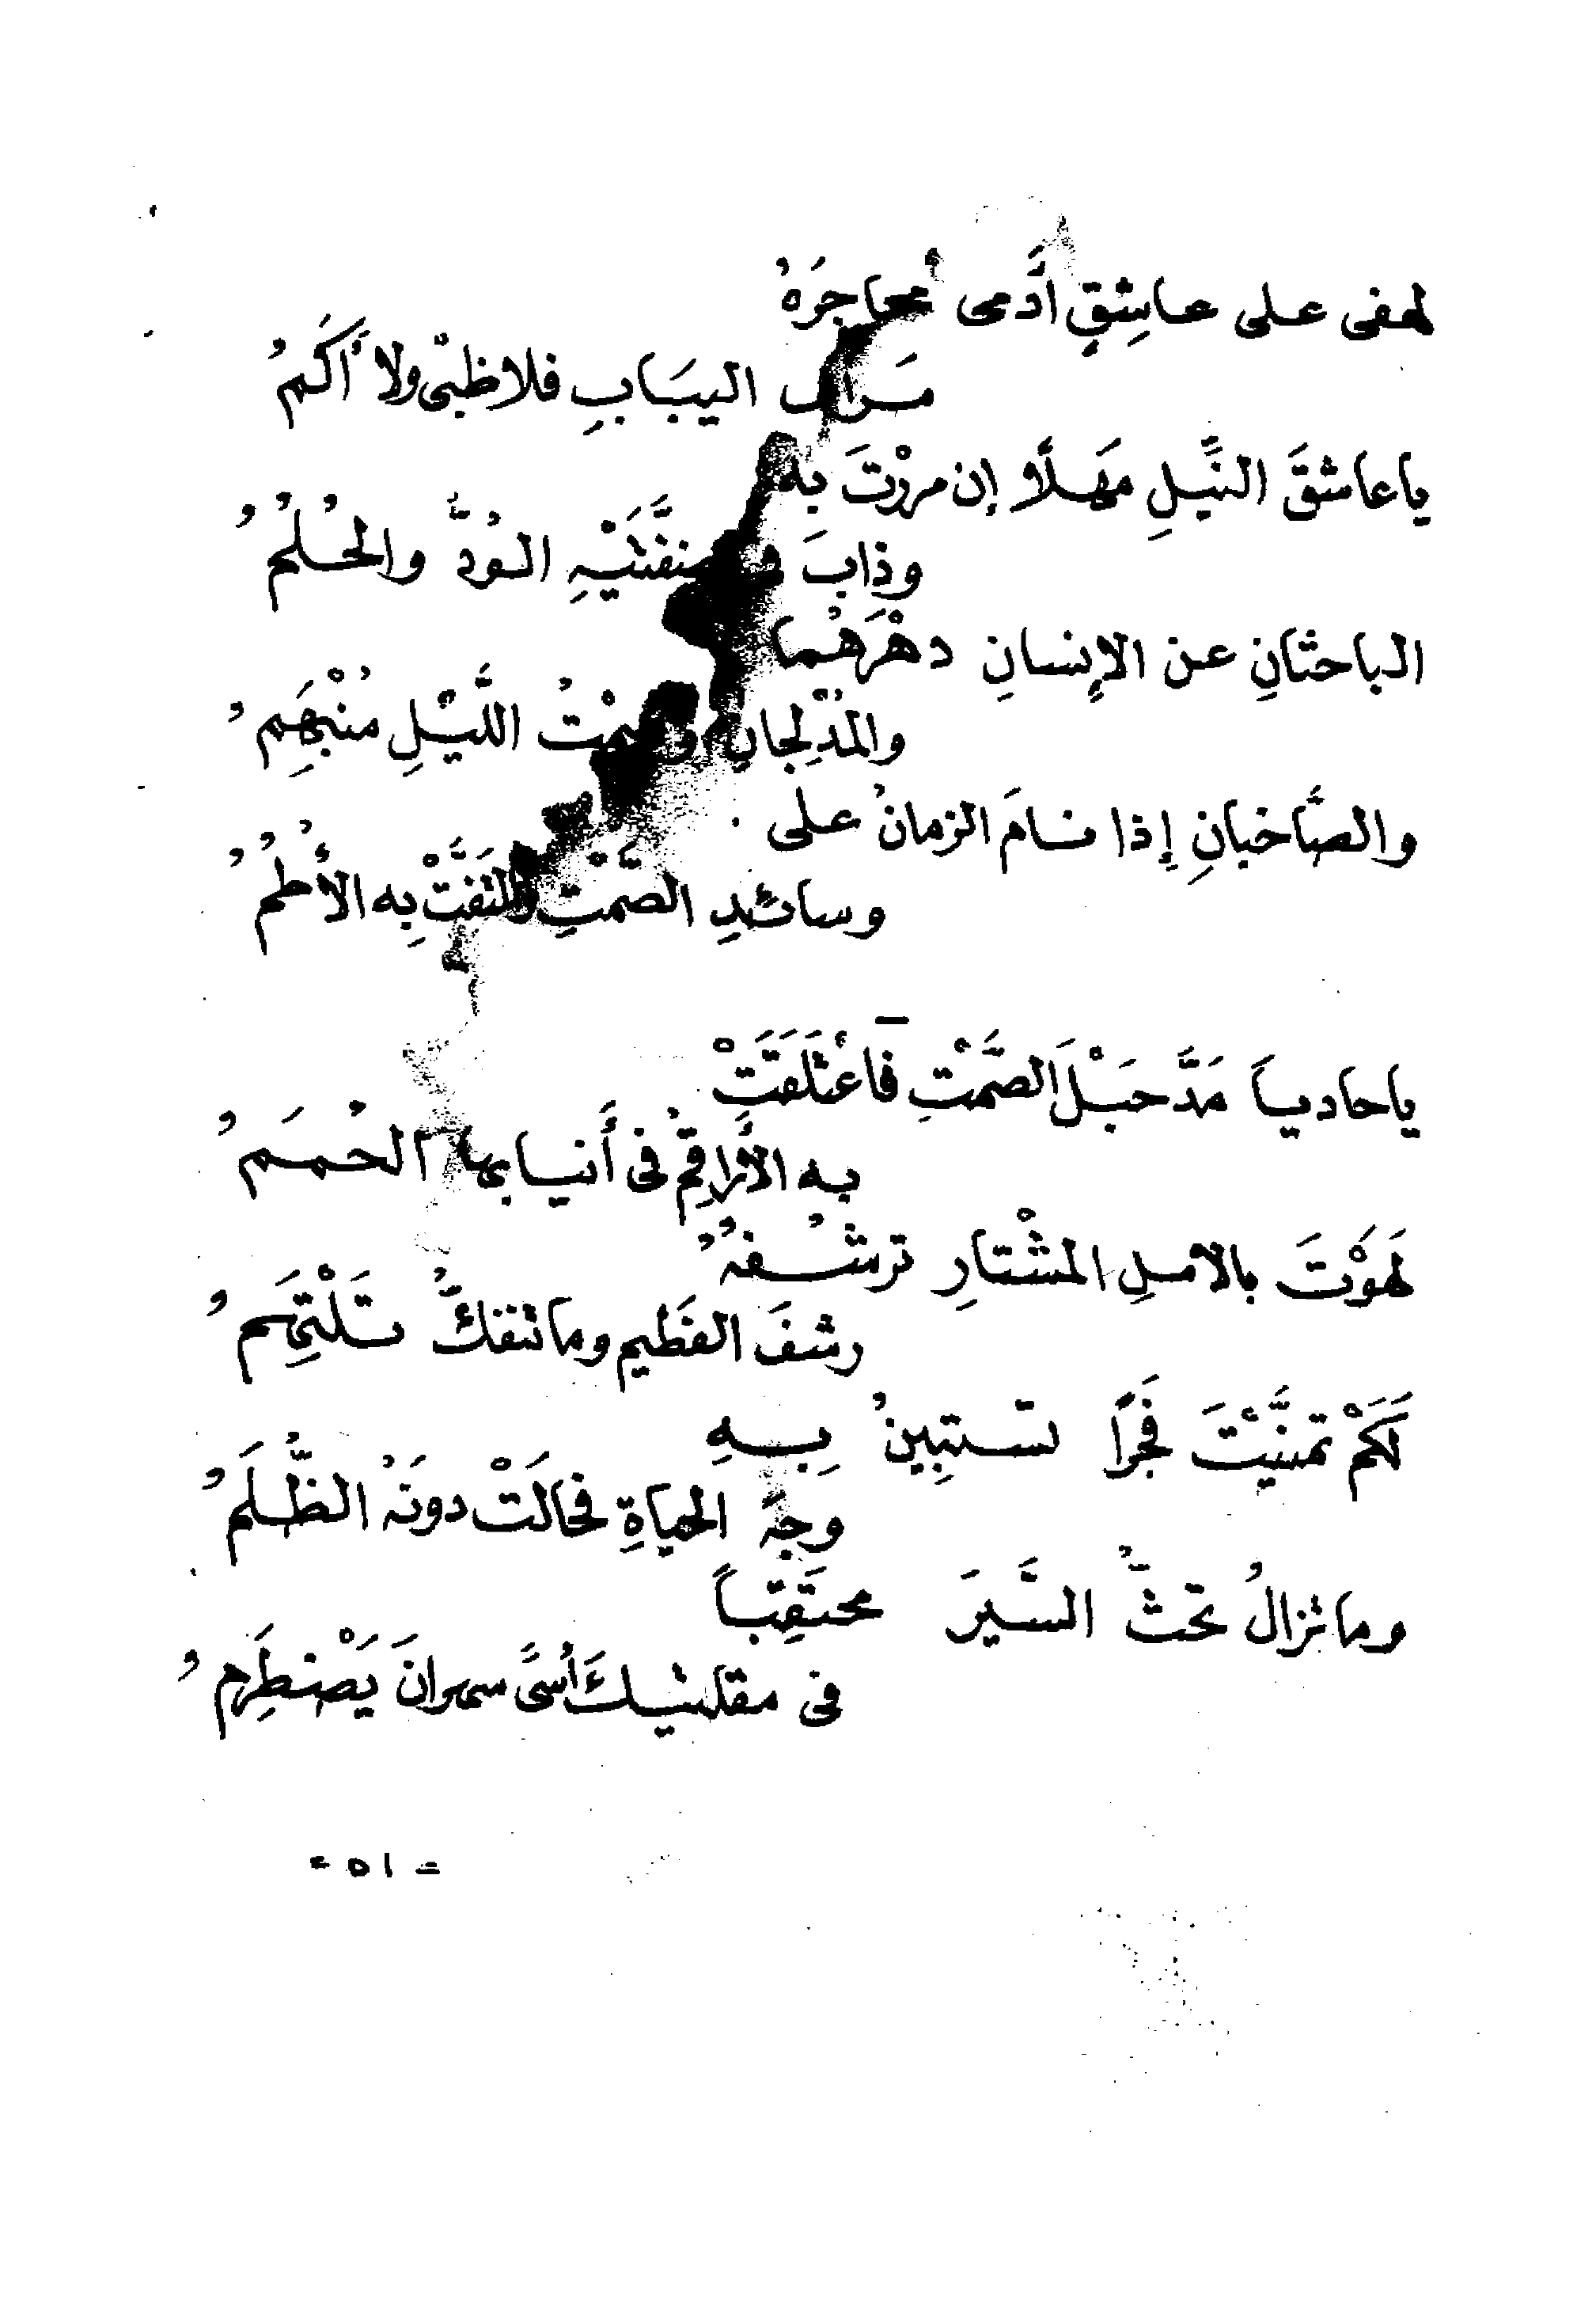 لهفى على عاشِقٍ أَدمى محاجِرَهُ
مَرأى اليبَابِ فلا ظبىٌ ولا أَكَمُ
ياعاشقَ النِّيلِ مَهلًا إن مررْتَ بِه
وذابَ فى ضفَّتَيْهِ الوُدُّ والحُلُمُ
الباحثانِ عن الإِنسانِ دهْرَهُما
والمُدْلِجانِ وصمْتُ اللَّيْلِ مُنْبَهِمُ
والصَّاخبانِ إِذا نامَ الزمانُ على
وسائدِ الصَّمْتِ والتفَّتْ بِه الأُطُمُ
ياحادياً مَدَّ حَبْلَ الصَّمْتِ فَاعْتَلَقَتْ
به الأَراقِمُ فى أَنيابها الحُمَمُ
لَهَوْتَ بالأمسلِ المشْتارِ ترشُفهُ
رشفَ الفَطيمِ وما تنفكُّ تَلْتَحِمُ
لَكَمْ تمنَّيْتَ فَجْراً تستبِينُ بِهِ
وجهَ الحياةِ فحالَتْ دونَهُ الظُّلَمُ
وما تزالُ تحثُّ السَّيرَ محتَقِباً
فى مقلتيكَ أُسىً سهرانَ يَضْطَرِمُ
- ٥١ -